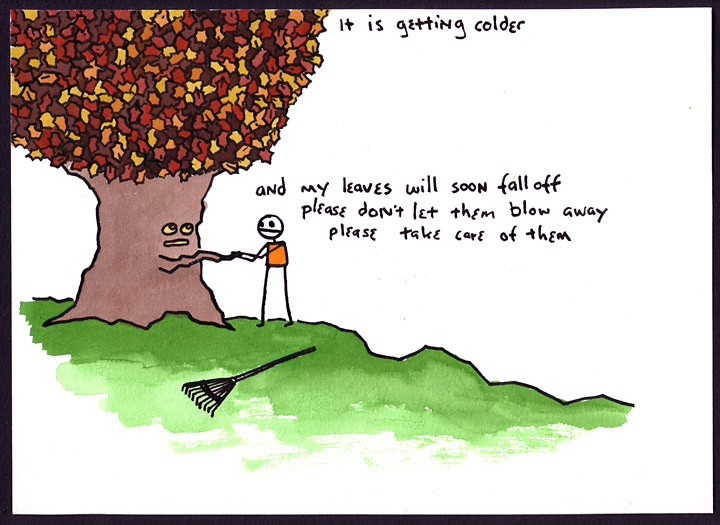 It is getting colder
and my leaves will soon fall off
please don't let them blow away
please take care of them